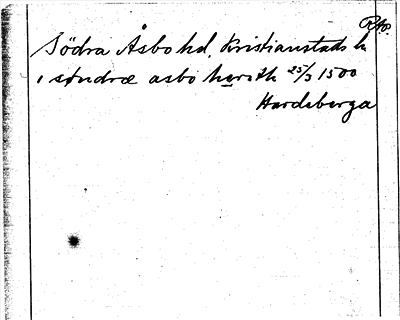 Södra Åsbo hd. Kristianstads ln
i søndræ asbo hæreth 25/3 1500
Hardeberga